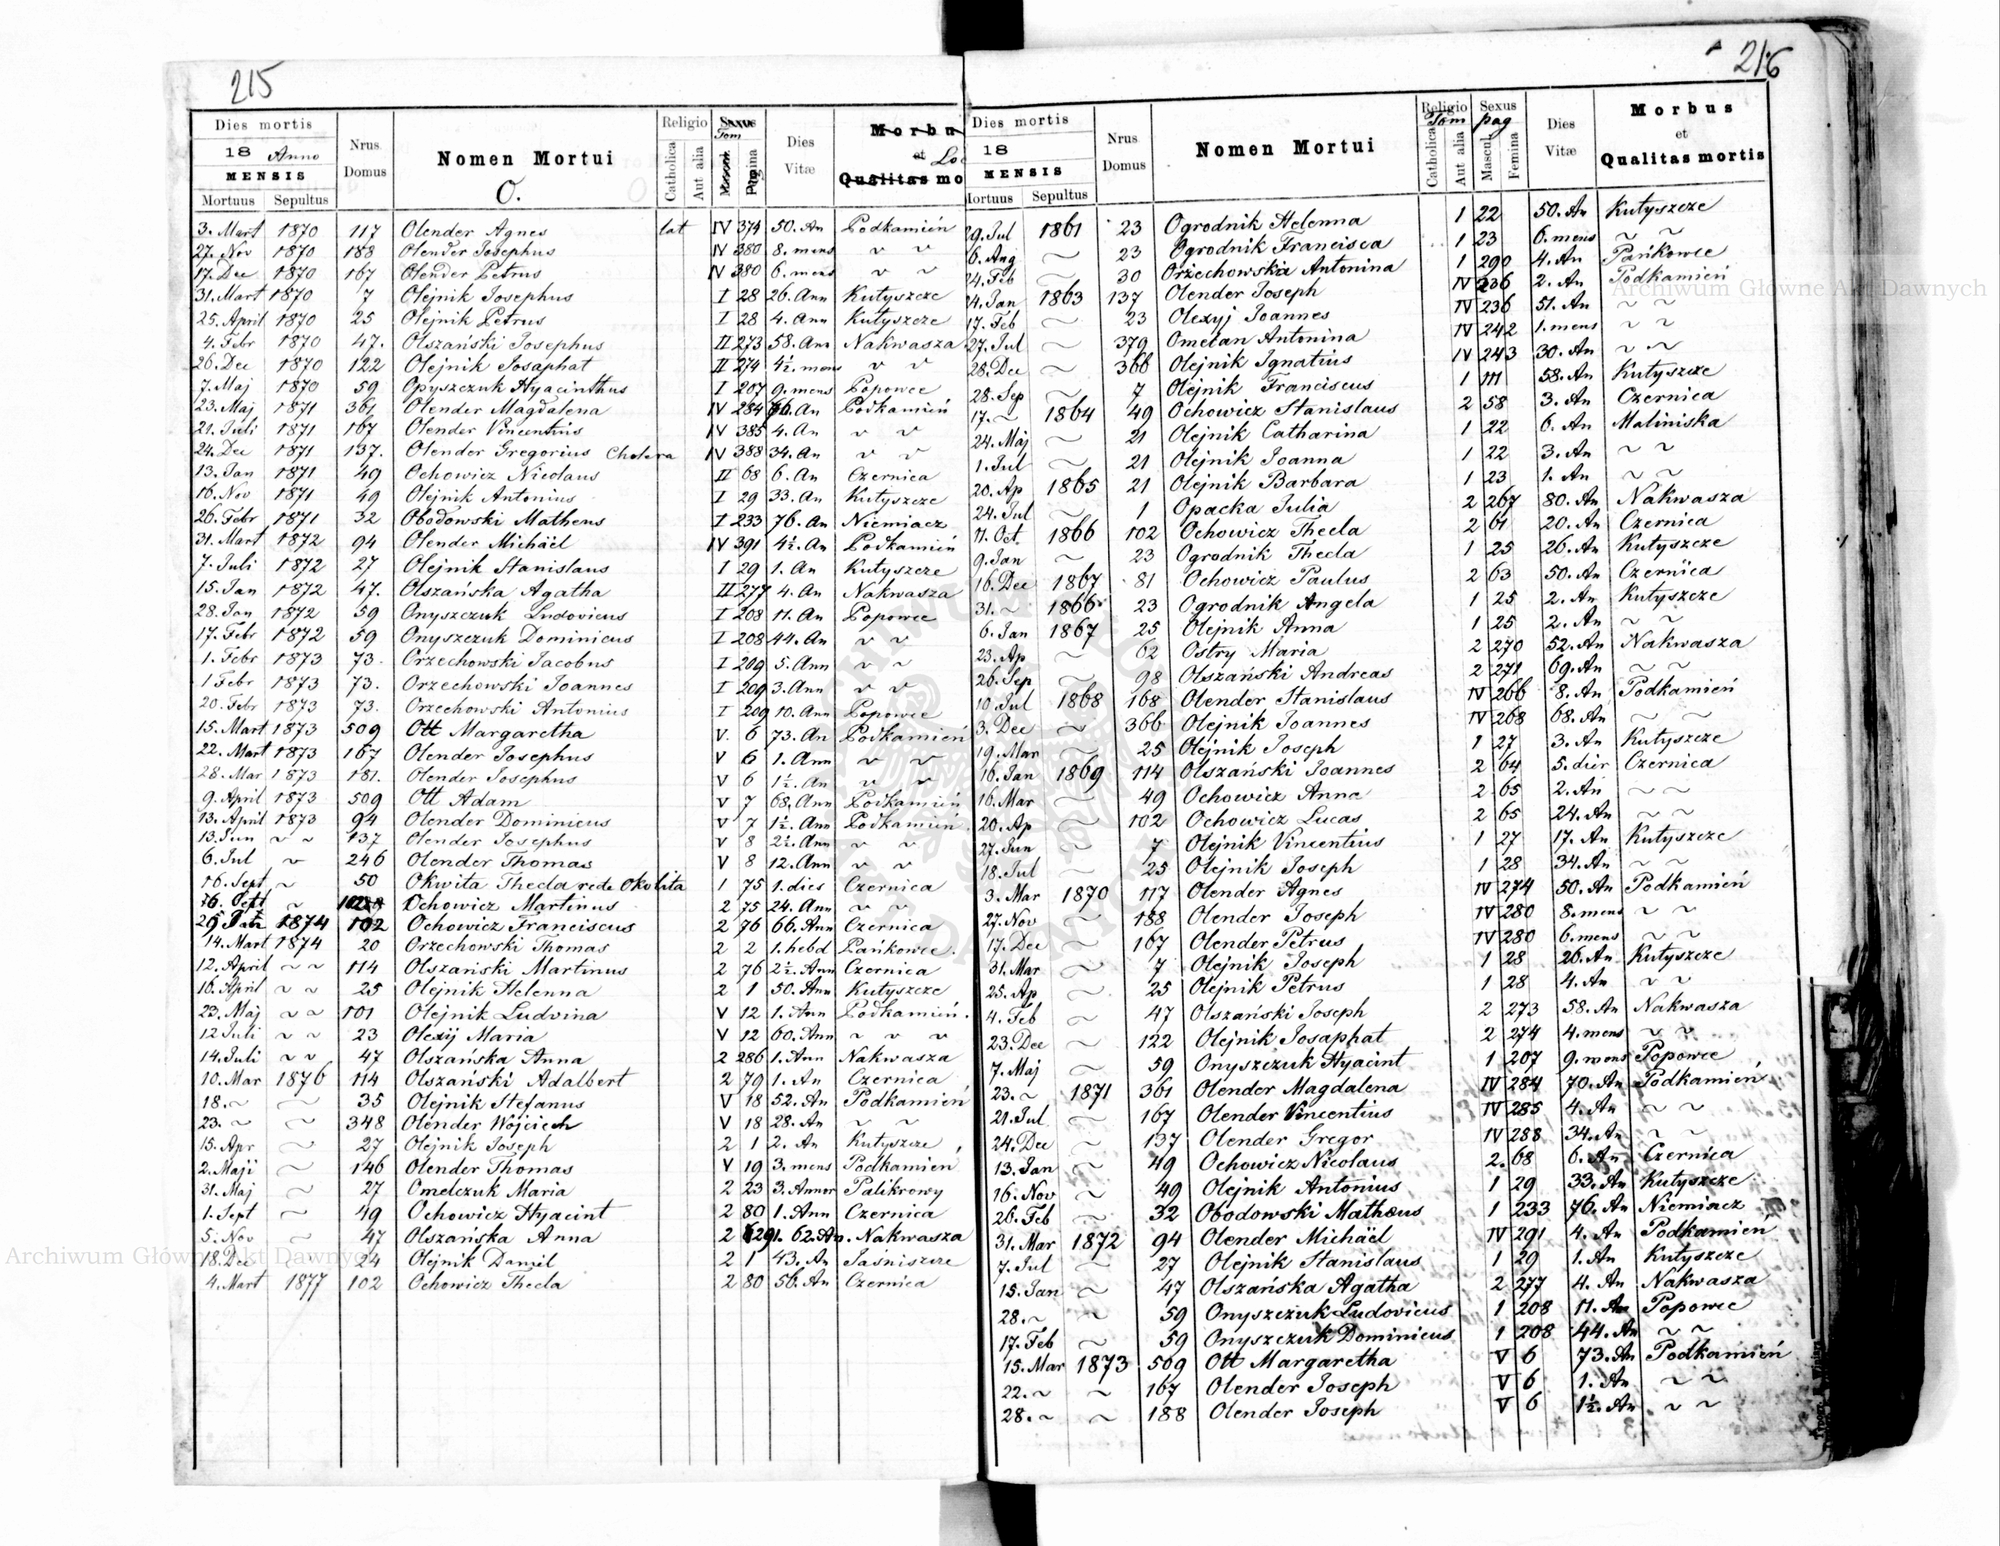 215
Dies mortis
18 Anno
MENSIS
Mortuus Sepultus
Nrus Domus
Nomen Mortui
O.
Religio
Catholica
Aut alia
Sexus
Tom
Pagina
Dies Vitæ
Morbu
et Loc
Qualitas mo
3. Mart 1870 117 Olender Agnes lat IV 374 50. An Podkamień
27. Nov 1870 188 Olender Josephus IV 380 8. mens v v
17. Dec 1870 167 Olender Petrus IV 380 6. mens v v
31. Mart 1870 7 Olejnik Josephus I 28 26. Ann Kutyszcze
25. April 1870 25 Olejnik Petrus I 28 4. Ann Kutyszcze
4. Febr 1870 47. Olszański Josephus II 273 58. Ann Nakwasza
26. Dec 1870 122 Olejnik Josaphat II 274 4½. mens v v
7. Maj 1870 59 Opyszczuk Hyacinthus I 207 9. mens Popowce
23. Maj 1871 361 Olender Magdalena IV 284 An Podkamień
21. Juli 1871 167 Olender Vincentius IV 385 4. An v v
24. Dec 1871 137. Olender Gregorius Cholera IV 388 34. An v v
13. Jan 1871 49 Ochowicz Nicolaus II 68 6. An Czernica
16. Nov 1871 49 Olejnik Antonius I 29 33. An Kutyszcze
26. Febr 1871 32 Obodowski Matheus I 233 76. An Niemiacz
31. Mart 1872 94 Olender Michäel IV 391 4½. An Podkamień
7. Juli 1872 27 Olejnik Stanislaus I 29 1. An Kutyszcze
15. Jan 1872 47. Olszańska Agatha II 277 4. An Nakwasza
28. Jan 1872 59 Onyszczuk Ludovicus I 208 11. An Popowce
17. Febr 1872 59 Onyszczuk Dominicus I 208 44. An v v
1. Febr 1873 73. Orzechowski Jacobus I 209 5. Ann v ~
1 Febr 1873 73. Orzechowski Joannes I 209 3. Ann v v
20. Febr 1873 73. Orzechowski Antonius I 209 10. Ann Popowce
15. Mart 1873 509 Ott Margaretha V. 6 73. An Podkamień
22. Mart 1873 167 Olender Josephus V 6 1. Ann v v
28. Mar 1873 181. Olender Josephus V 6 1½. An v v
9. April 1873 509 Ott Adam V 7 68. Ann Podkamień
13. April 1873 94 Olender Dominicus V 7 1½. Ann Podkamień.
13. Jun ~ ~ 137 Olender Josephus V 8 2½. Ann v v
6. Jul v 246 Olender Thomas V 8 12. Ann v v
16. Sept ~ 50 Okwita Thecla recte Okolita 1 75 1. dies Czernica
~ Ochowicz Martinus 2 75 24. Ann v v
1874 102 Ochowicz Franciscus 2 76 66. Ann Czernica
14. Mart 1874 20 Orzechowski Thomas 2 2 1. hebd Pańkowce.
12. April ~ ~ 114 Olszański Martinus 2 76 2½. Ann Czernica
16. April ~ ~ 25 Olejnik Helenna 2 1 50. Ann Kutyszcze
22. Maj ~ ~ 101 Olejnik Ludvina V 12 1. Ann Podkamień.
12 Juli ~ ~ 23 Olexij Maria V 12 60. Ann ~ v v
14. Juli v v 47 Olszańska Anna 2 286 1. Ann Nakwasza
10. Mar 1876 114 Olszański Adalbert 2 79 1. An Czernica
18. ~ ~ 35 Olejnik Stefanus V 18 52. An Podkamień
23. ~ ~ 348 Olender Wojciech V 18 28. An ~ ~
15. Apr ~ 27 Olejnik Joseph 2 1 2. An Kutyszcze
2. Maji ~ 146 Olender Thomas V 19 3. mens Podkamień
31. Maj ~ 27 Omelczuk Maria 2 23 3. Annor Palikrowy
1. Sept ~ 49 Ochowicz Hyacint 2 80 1. Ann Czernica
5. Nov ~ 47 Olszańska Anna 2 291. 62. An. Nakwasza
18. Dec ~ 24 Olejnik Daniel 2 1 43. An Jaśniszcze
4. Mart 1877 102 Ochowicz Thecla 2 80 56. An Czernica
216
Dies mortis
18
MENSIS
Mortuus Sepultus
Nrus Domus
Nomen Mortui
Religio
Tom
Catholica
Aut alia
Sexus
pag
Mascul.
Femina
Dies Vitæ
Morbus
et
Qualitas mortis
29. Jul 1861 23 Ogrodnik Helenna 1 22 50. An Kutyszcze
6. Aug ~ 23 Ogrodnik Francisca 1 23 6. mens ~ ~
24. Feb ~ 30 Orzechowska Antonina 1 290 4. An Pańkowce
4. Jan 1863 137 Olender Joseph IV 236 2. An Podkamień
17. Feb ~ 23 Olexyj Joannes IV 236 51. An ~ ~
27. Jul ~ 379 Omelan Antonina IV 242 1. mens ~ ~
28. Dec ~ 366 Olejnik Ignatius IV 243 30. An ~ ~
28. Sep ~ 7 Olejnik Franciscus 1 111 58. An Kutyszcze
17. ~ 1864 49 Ochowicz Stanislaus 2 58 3. An Czernica
24. Maj ~ 21 Olejnik Catharina 1 22 6. An Maliniska
1. Jul ~ 21 Olejnik Joanna 1 22 3. An ~ ~
20. Ap 1865 21 Olejnik Barbara 1 23 1. An ~ ~
24. Jul ~ 1 Opacka Julia 2 267 80. An Nakwasza
11. Oct. 1866 102 Ochowicz Thecla 2 61 20. An Czernica
9. Jan ~ 23 Ogrodnik Thecla 1 25 26. An Kutyszcze
16. Dec 1867 81 Ochowicz Paulus 2 63 50. An Czernica
31. ~ 1866 23 Ogrodnik Angela 1 25 2. An Kutyszcze
6. Jan 1867 25 Olejnik Anna 1 25 2. An ~ ~
23. Ap ~ 62 Ostry Maria 2 270 52. An Nakwasza
26. Sep ~ 98 Olszański Andreas 2 271 69. An ~ ~
10. Jul 1868 168 Olender Stanislaus IV 266 8. An Podkamień
3. Dec ~ 366 Olejnik Joannes IV 268 68. An ~ ~
19. Mar ~ 25 Olejnik Joseph 1 27 3. An Kutyszcze
16. Jan 1869 114 Olszański Joannes 2 64 5. dier Czernica
16. Mar ~ 49 Ochowicz Anna 2 65 2. An ~ ~
20. Ap ~ 102 Ochowicz Lucas 2 65 24. An ~ ~
27. Jun ~ 7 Olejnik Vincentius 1 27 17. An Kutyszcze
18. Jul ~ 25 Olejnik Joseph 1 28 34. An ~ ~
3. Mar 1870 117 Olender Agnes IV 274 50. An Podkamień
27. Nov ~ 188 Olender Joseph IV 280 8. mens ~ ~
17. Dec ~ 167 Olender Petrus IV 280 6. mens ~ ~
31. Mar ~ 7 Olejnik Joseph 1 28 26. An Kutyszcze
25. Ap ~ 25 Olejnik Petrus 1 28 4. An ~ ~
4. Feb ~ 47 Olszański Joseph 2 273 58. An Nakwasza
23. Dec ~ 122 Olejnik Josaphat 2 274 4. mens ~ ~
7. Maj ~ 59 Onyszczuk Hyacint 1 207 9. mens Popowce
23. ~ 1871 361 Olender Magdalena IV 284 70. An Podkamień
21. Jul ~ 167 Olender Vincentius IV 285 4. An ~ ~
24. Dec ~ 137 Olender Gregor IV 288 34. An ~ ~
13. Jan ~ 49 Ochowicz Nicolaus 2. 68 6. An Czernica
16. Nov ~ 49 Olejnik Antonius 1 29 33. An Kutyszcze
26. Feb ~ 32 Obodowski Matheus 1 233 76. An Niemiacz
31. Mar 1872 94 Olender Michäel IV 291 4. An Podkamien
7. Jul ~ 27 Olejnik Stanislaus 1 29 1. An Kutyszcze
15. Jan ~ 47 Olszańska Agatha 2 277 4. An Nakwasza
28. ~ ~ 59 Onyszczuk Ludovicus 1 208 11. An Popowce
17. Feb ~ 59 Onyszczuk Dominicus 1 208 44. An ~ ~
15. Mar 1873 509 Ott Margaretha V 6 73. An Podkamień
22. ~ ~ 167 Olender Joseph V 6 1. An ~ ~
28. ~ ~ 188 Olender Joseph V 6 1½. An ~ ~
Archiwum Główne Akt Dawnych
Archiwum Główne Akt Dawnych